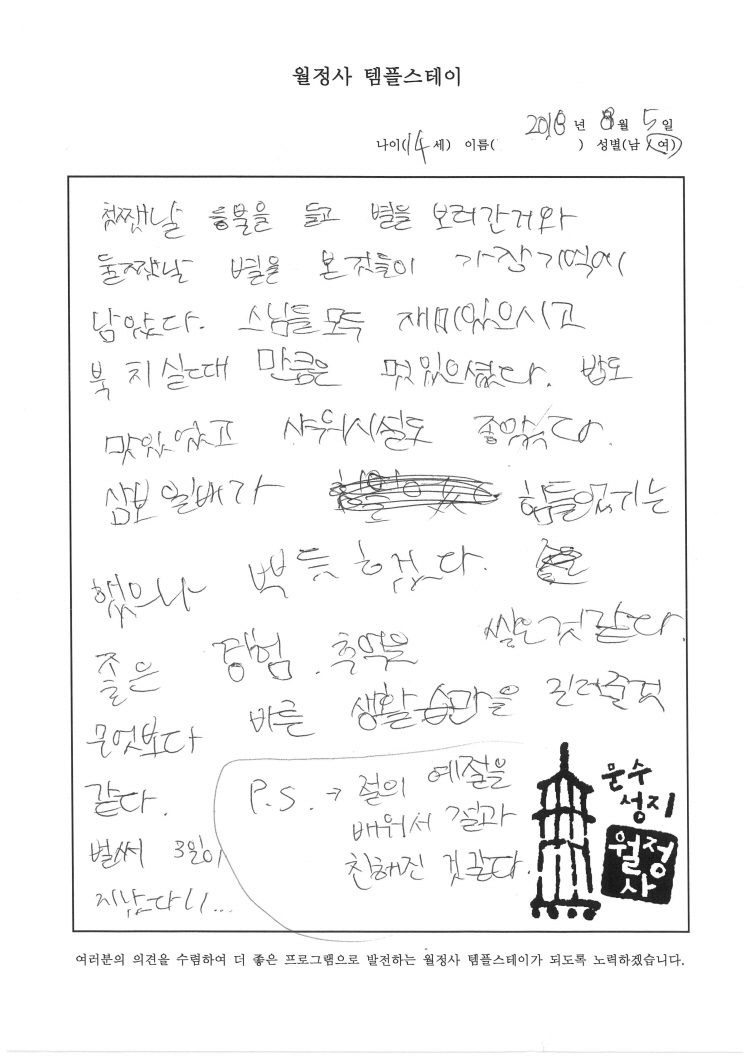 월정사 템플스테이
2018 년 8 월 5 일
나이(14 세) 이름( ) 성별(남 / 여)
첫짼날 등불을 들고 별을 보러간거와
둘짼날 별을 본것들이 가장기억에
남았다. 스님들 모두 재미있으시고
북 치실때 만큼은 멋있으셨다. 밥도
맛있었고 샤워시설도 좋았다.
삼보일배가 힘들었기는
했으나 뿌듯하겄다.
좋은 경험, 추억을 쌓은것같다.
무엇보다 바른 생활습관을 길러줄것
같다.
벌써 3일이
지났다니...
P.S. → 절의 예절을
배워서 절과
친해진 것같다.
문수
성지
월정
사
여러분의 의견을 수렴하여 더 좋은 프로그램으로 발전하는 월정사 템플스테이가 되도록 노력하겠습니다.